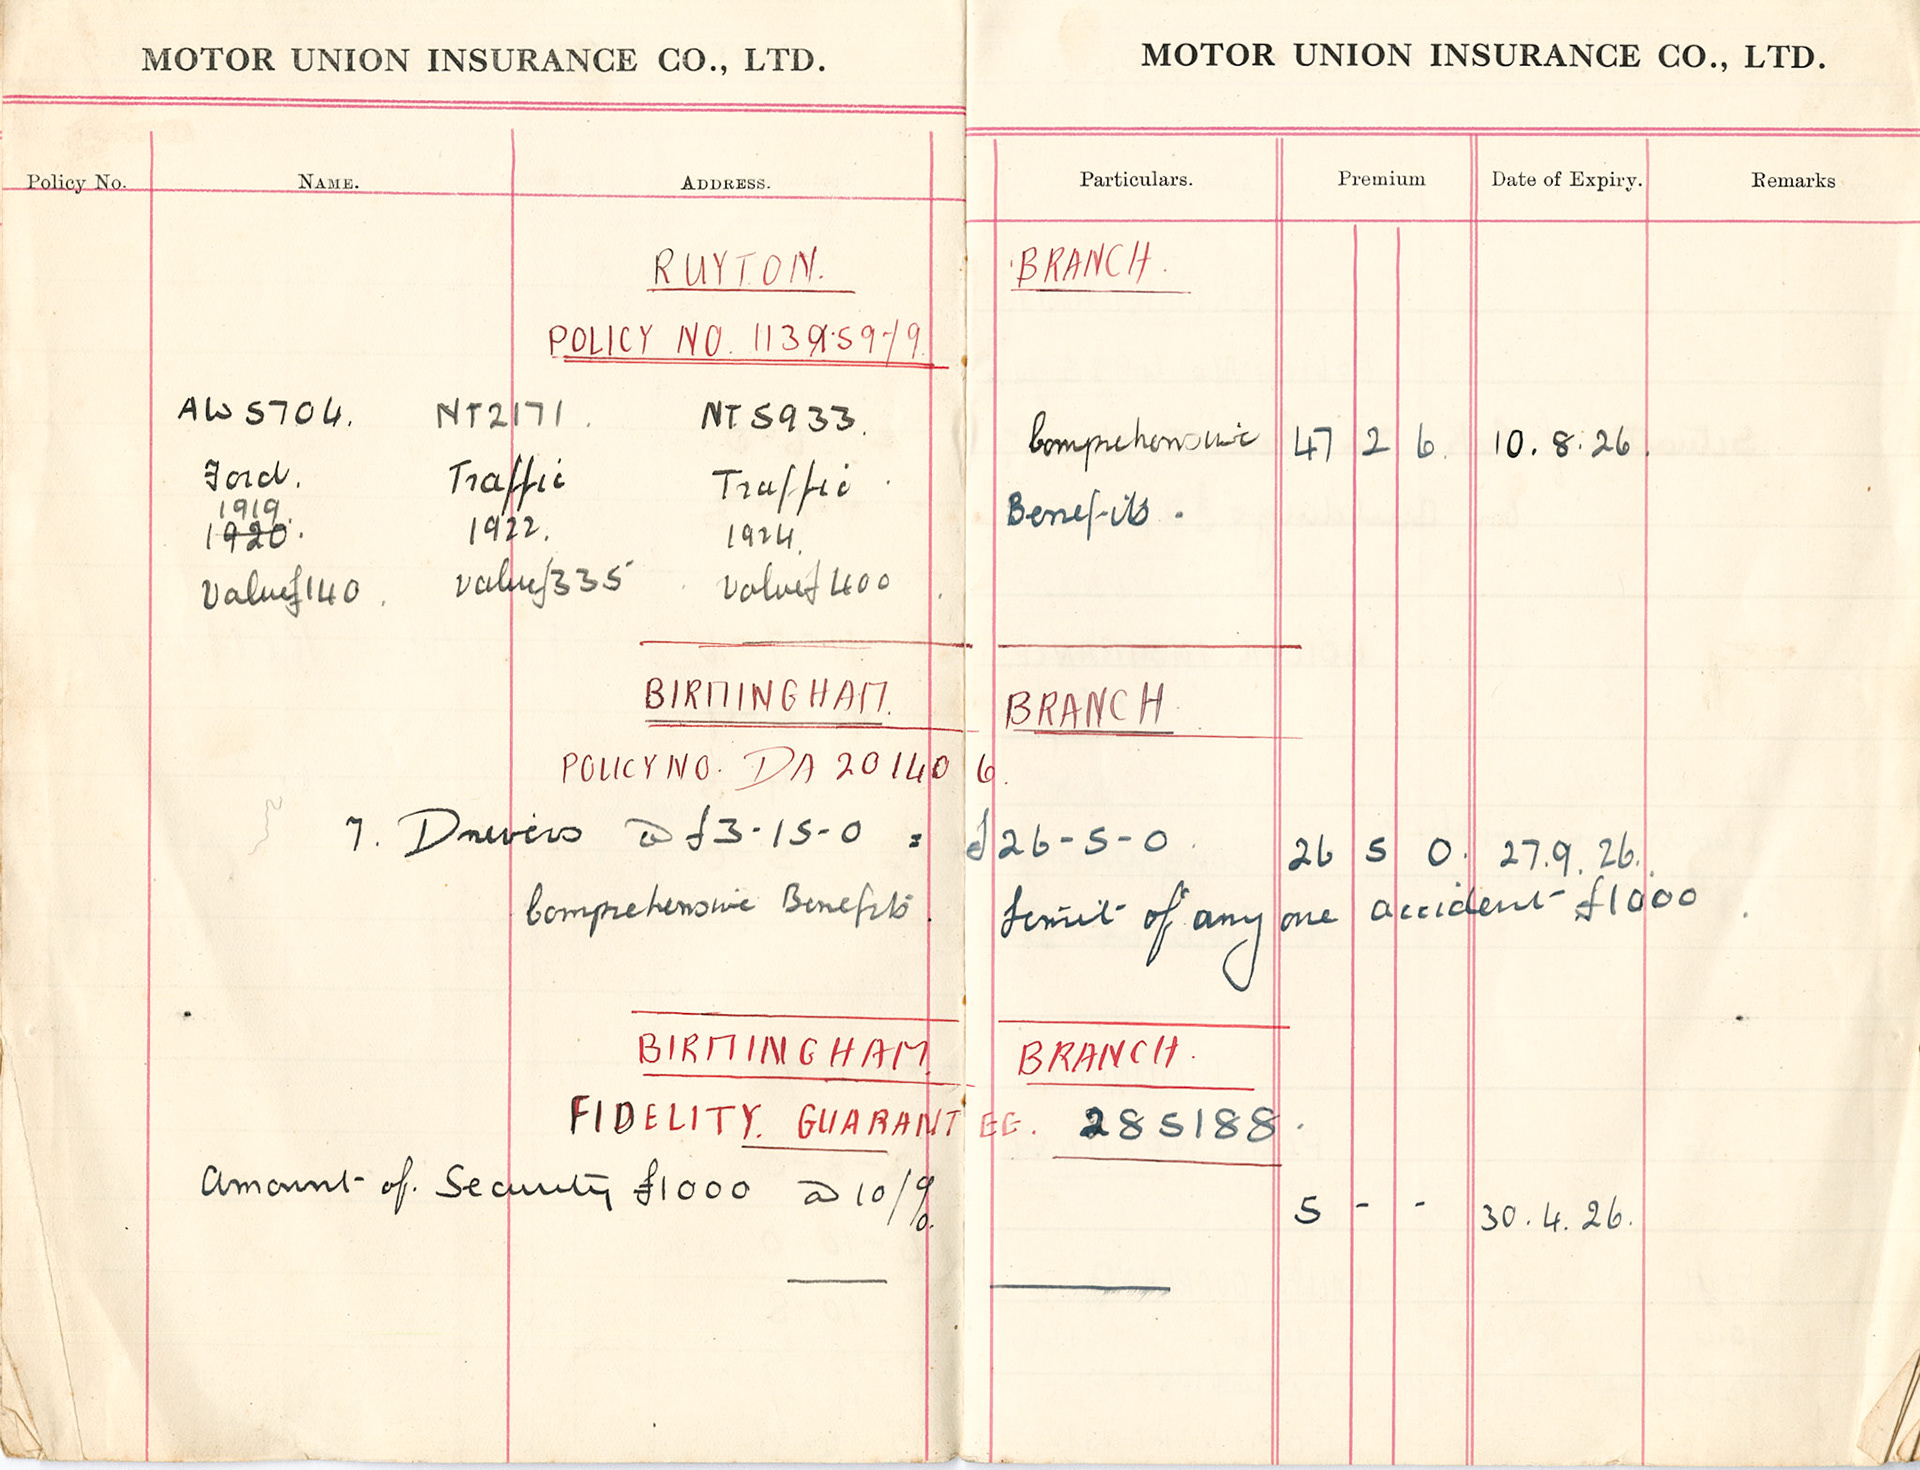 MOTOR UNION INSURANCE CO., LTD. MOTOR UNION INSURANCE CO., LTD.
Policy No. NAME. ADDRESS. Particulars. Premium Date of Expiry. Remarks
RUYTON. BRANCH.
POLICY NO.
AW 5704. NT2171. NT 5933. Comprehensive 47 2 6. 10.8.26.
Ford. Traffic Traffic. Benefits.
1919.
1920. 1922. 1924.
Value £140. value £335 value £400
BIRMINGHAM. BRANCH
POLICY NO. DA 201406.
7. Drivers @ £3-15-0 = £26-5-0. 26 5 0. 27.9.26.
Comprehensive Benefits. Limit of any one accident £1000.
BIRMINGHAM. BRANCH.
FIDELITY. GUARANTEE. 285188.
Amount of. Security £1000 @ 10/% 5 - - 30.4.26.